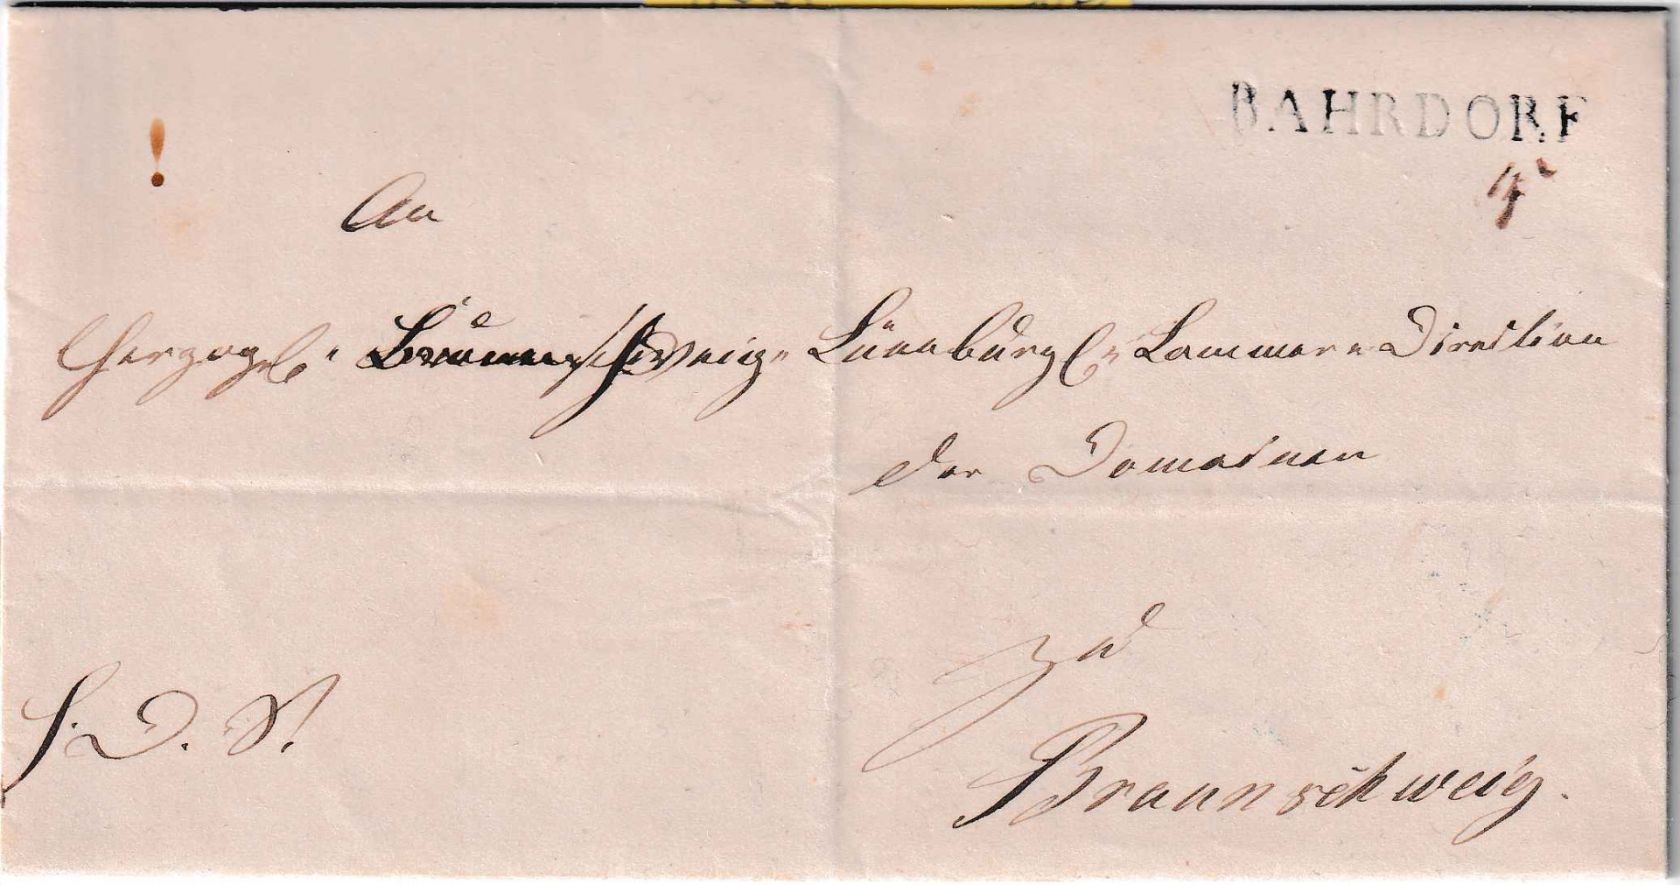 BAHRDORF
An
Herzogl. Braunschweig- Lüneburgl. Cammer- Direction
der Domainen
zu
Braunschweig.
H. D. S.